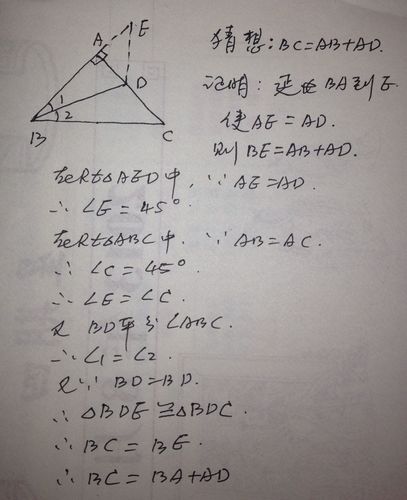 A E
D
1
2
B C
猜想:BC=AB+AD.
证明:延长BA到E.
使AE=AD.
则BE=AB+AD.
在Rt△AED中,∵AE=AD.
∴∠E=45°.
在Rt△ABC中.∵AB=AC.
∴∠C=45°.
∴∠E=∠C.
又BD平分∠ABC.
∴∠1=∠2.
又∵BD=BD.
∴△BDE≌△BDC.
∴BC=BE.
∴BC=BA+AD